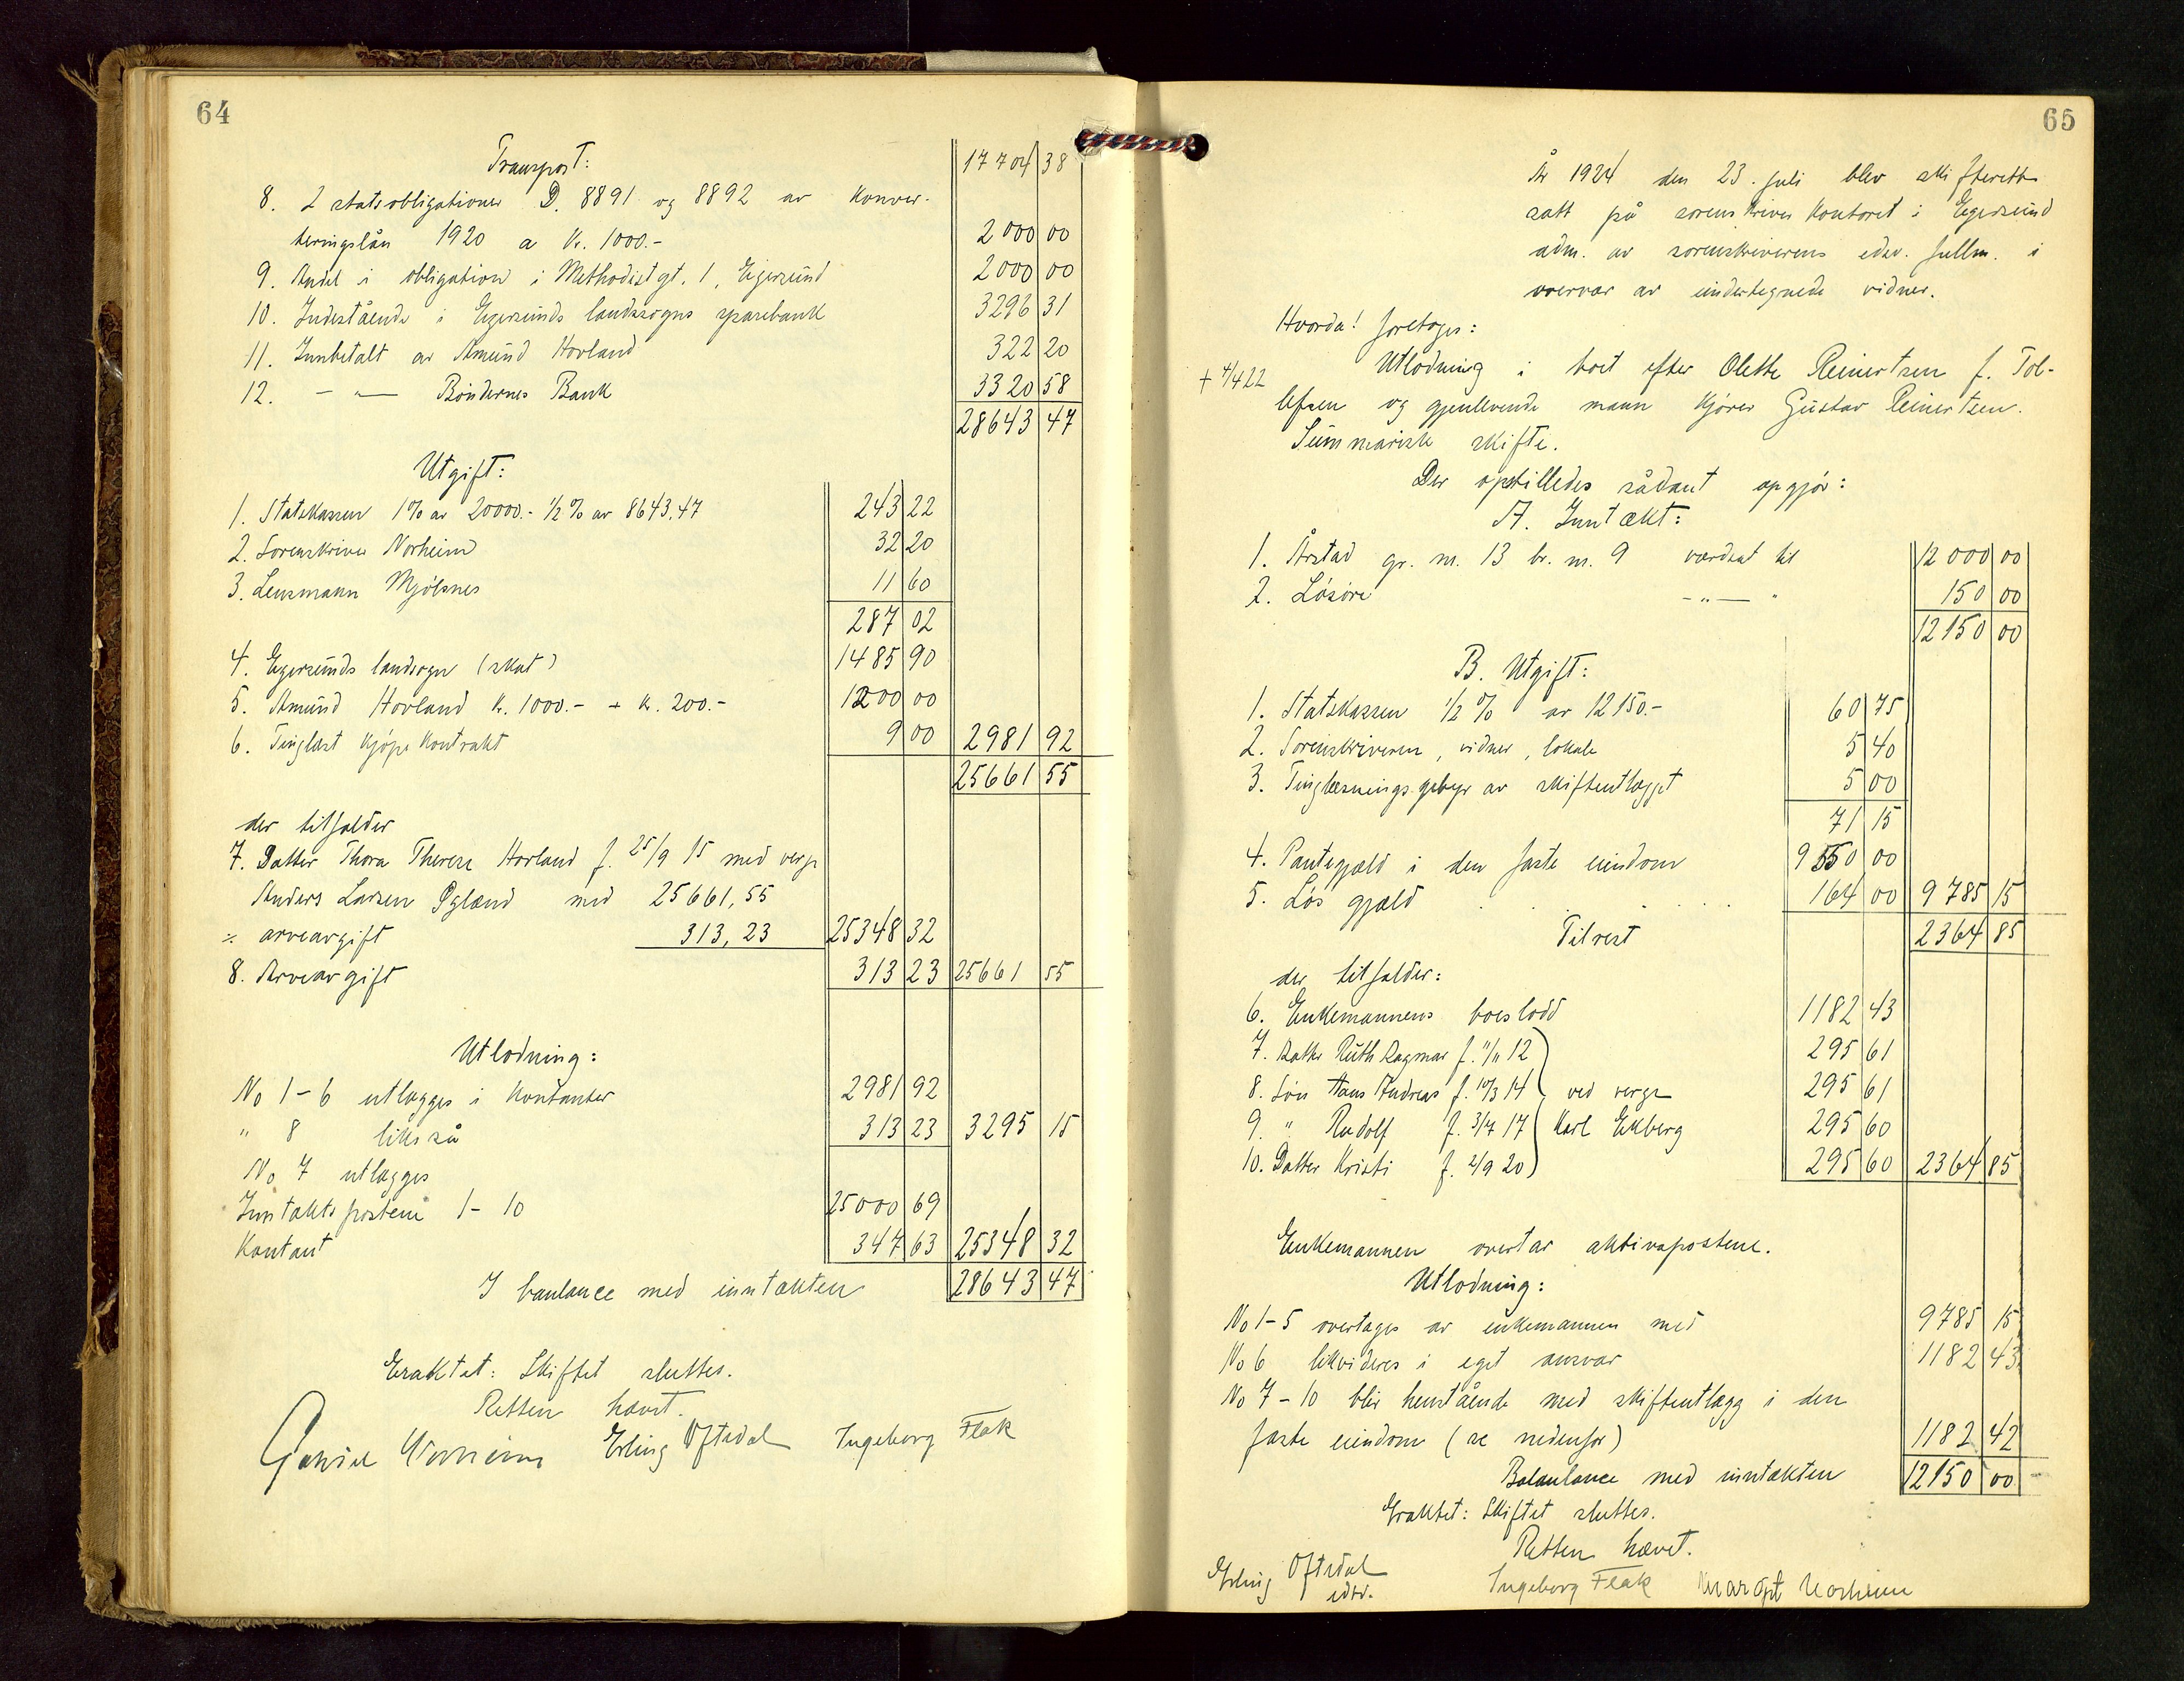 64
Transport: 17704 38
8. 2 statsobligationer D. 8891 og 8892 av Konver-
teringslån 1920 a Kr. 1000.- 2000 00
9. Andel i obligation i Methodistgt. 1, Egersund 2000 00
10. Indestående i Egersunds landssogns sparebank 3296 31
11. Innbetalt av Amund Hovland 322 20
12. - " - Bøndernes Bank 3320 58
28643 47
Utgift:
1. Statskassen 1% av 20000.- 1/2% av 8643.47 243 22
2. Sorenskriver Norheim 32 20
3. Lensmann Mjølsnes 11 60
287 02
4. Egersunds landsogn (skat) 1485 90
5. Amund Hovland Kr. 1000.- + Kr. 200.- 1200 00
6. Tinglæst kjøpekontrakt 9 00 2981 92
25661 55
der tilfalder
7. Datter Thora Therese Hovland f. 25/9 15 med verge
Anders Larsen Øgland med 25661,55
÷ arveavgift 313,23 25348 32
8. Arveavgift 313 23 25661 55
Utlodning:
No 1-6 utlægges i Kontanter 2981 92
" 8 likeså 313 23 3295 15
No 7 utlægges
Inntektsposterne 1-10 25000 69
Kontant 347 63 25348 32
I banlance med inntækten 28643 47
Eraktet: Skiftet sluttes.
Retten hævet.
Gabriel Norheim Erling Oftedal Ingeborg Flek
65
År 1924 den 23. juli blev skifterett
satt på sorenskriverkontoret i Egersund
adm. av sorenskriverens edsv. fullm. i
overvær av undertegnede vidner.
Hvorda! foretages:
+ 4/4 22 Utlodning i boet efter Olette Reinertsen f. Tol-
lefsen og gjenlevende mann kjører Gustav Reinertsen.
Summarisk skifte.
Der opstilledes sådant opgjør:
A. Inntækt:
1. Årstad gr. nr. 13 br. nr. 9 værdsat til 12000 00
2. Løsøre - " - " 150 00
12150 00
B. Utgift:
1. Statskassen 1/2% av 12150.- 60 75
2. Sorenskriveren, vidner, lokale 5 40
3. Tinglæsningsgebyr av skifteutlægget 5 00
71 15
4. Pantegjæld i den faste eiendom 9550 00
5. Løs gjæld . . . . . . 164 00 9785 15
Tilrest 2364 85
der tilfalder:
6. Enkemannens boeslodd 1182 43
7. Datter Ruth Dagmar f. 11/11 12 295 61
8. Søn Hans Andreas f. 10/3 14 ved verge 295 61
9. " Rudolf f. 3/7 17 Karl Ekberg 295 60
10. Datter Kristi f. 2/9 20 295 60 2364 85
Enkemannen overtar aktivapostene.
Utlodning:
No 1-5 overtages av enkemannen med 9785 15
No 6 likvideres i eget ansvar 1182 43
No 7-10 blir henstående med skifteutlegg i den
faste eiendom (se nedenfor) 1182 42
Balanlance med inntækten 12150 00
Eraktet: Skiftet sluttes.
Retten hævet.
Erling Oftedal
edsv. Ingeborg Flek Margit Norheim